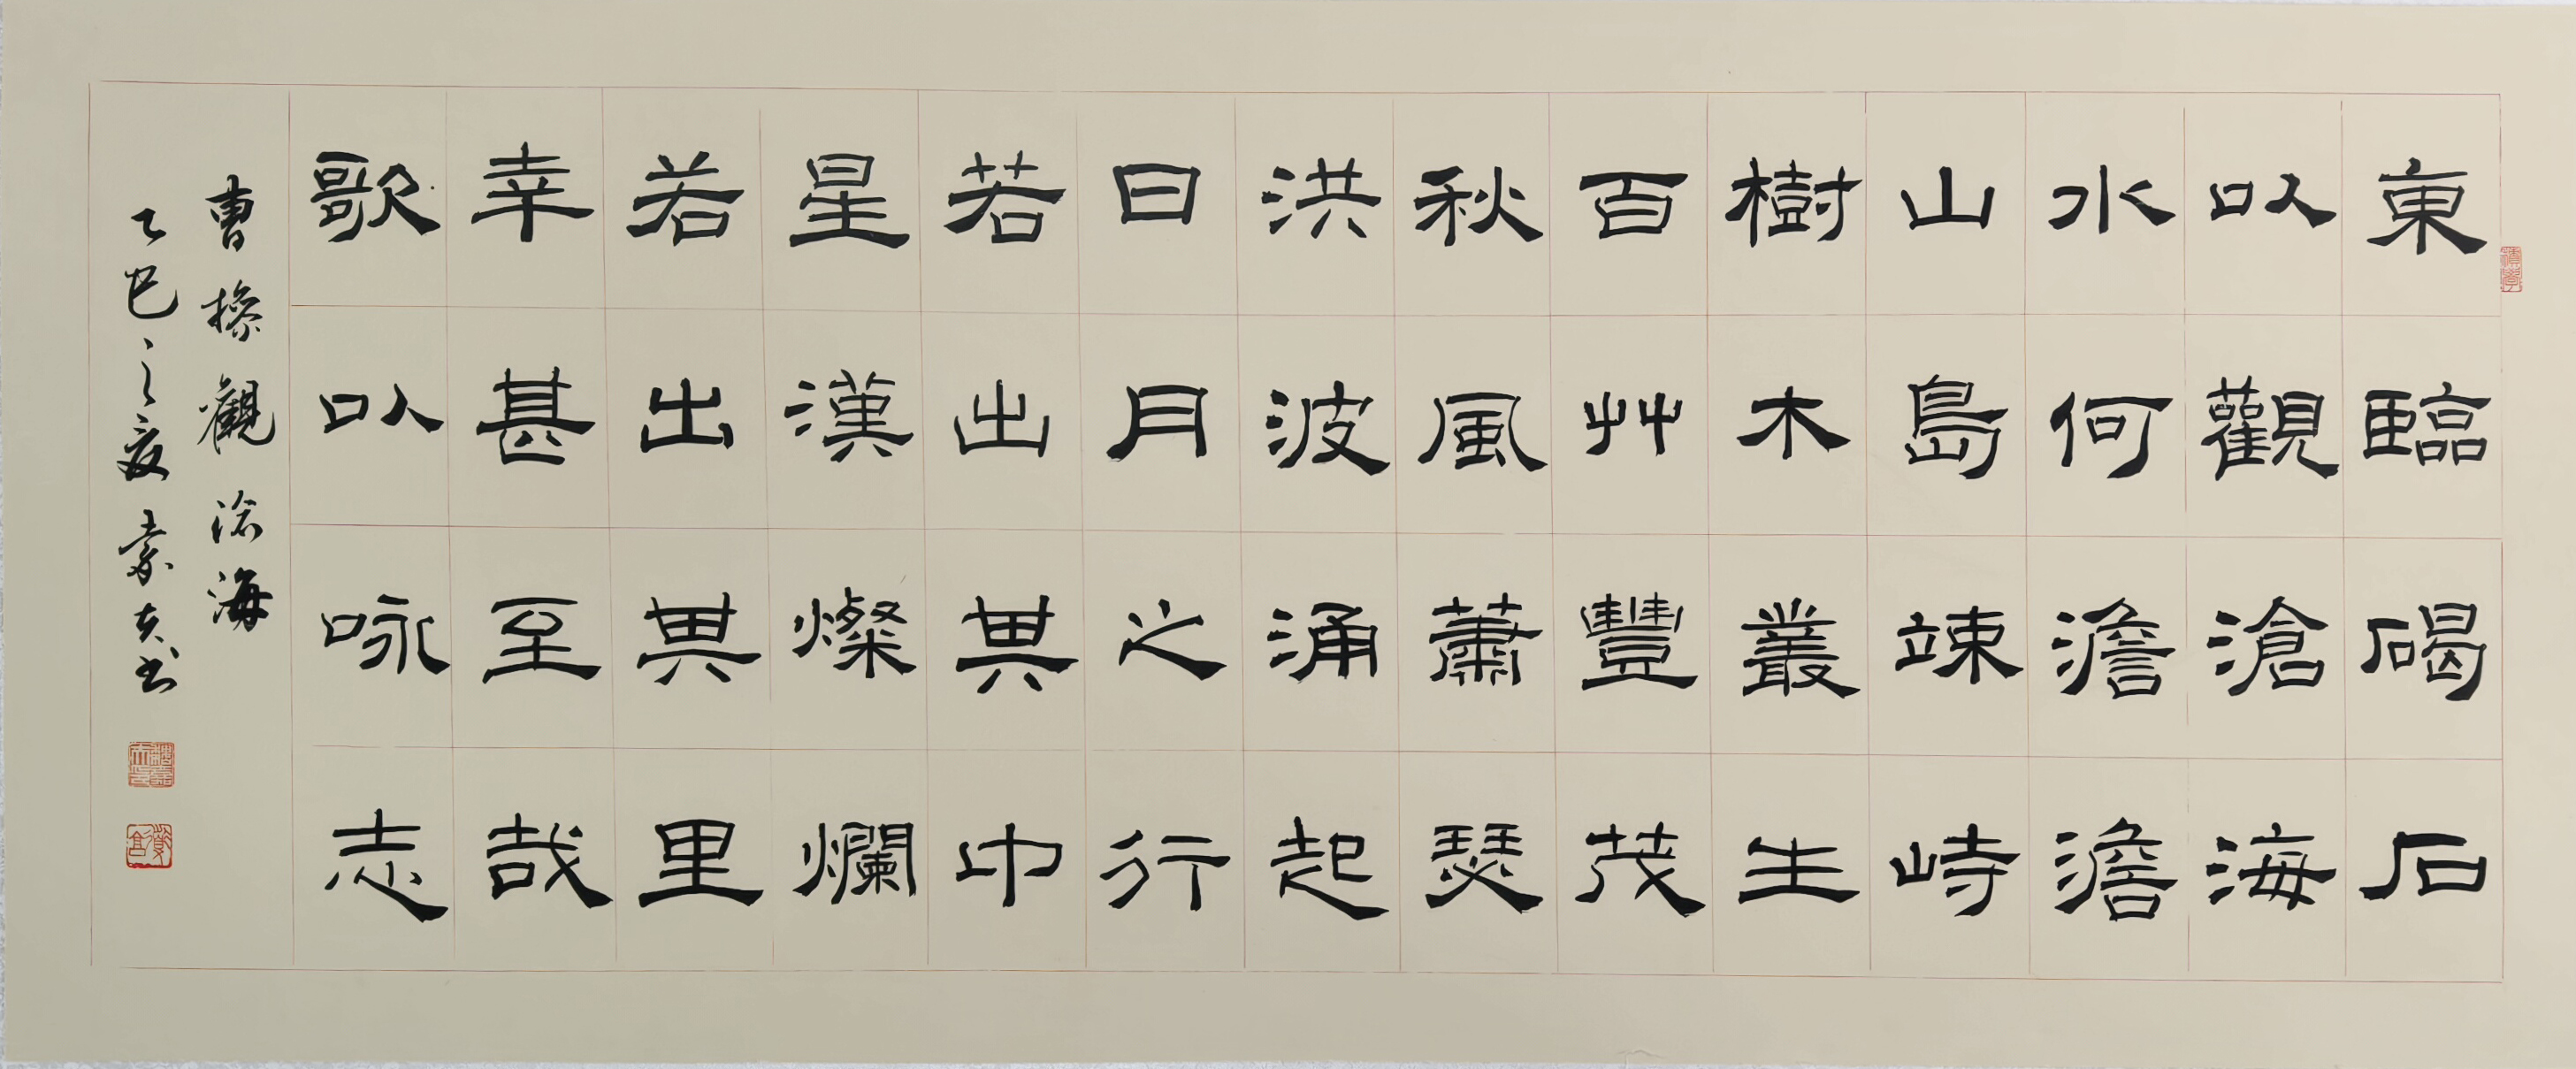 東臨碣石
以觀滄海
水何澹澹
山島竦峙
樹木叢生
百艸豐茂
秋風蕭瑟
洪波涌起
日月之行
若出其中
星漢燦爛
若出其里
幸甚至哉
歌以咏志
曹操觀滄海
乙巳之夏素夫书